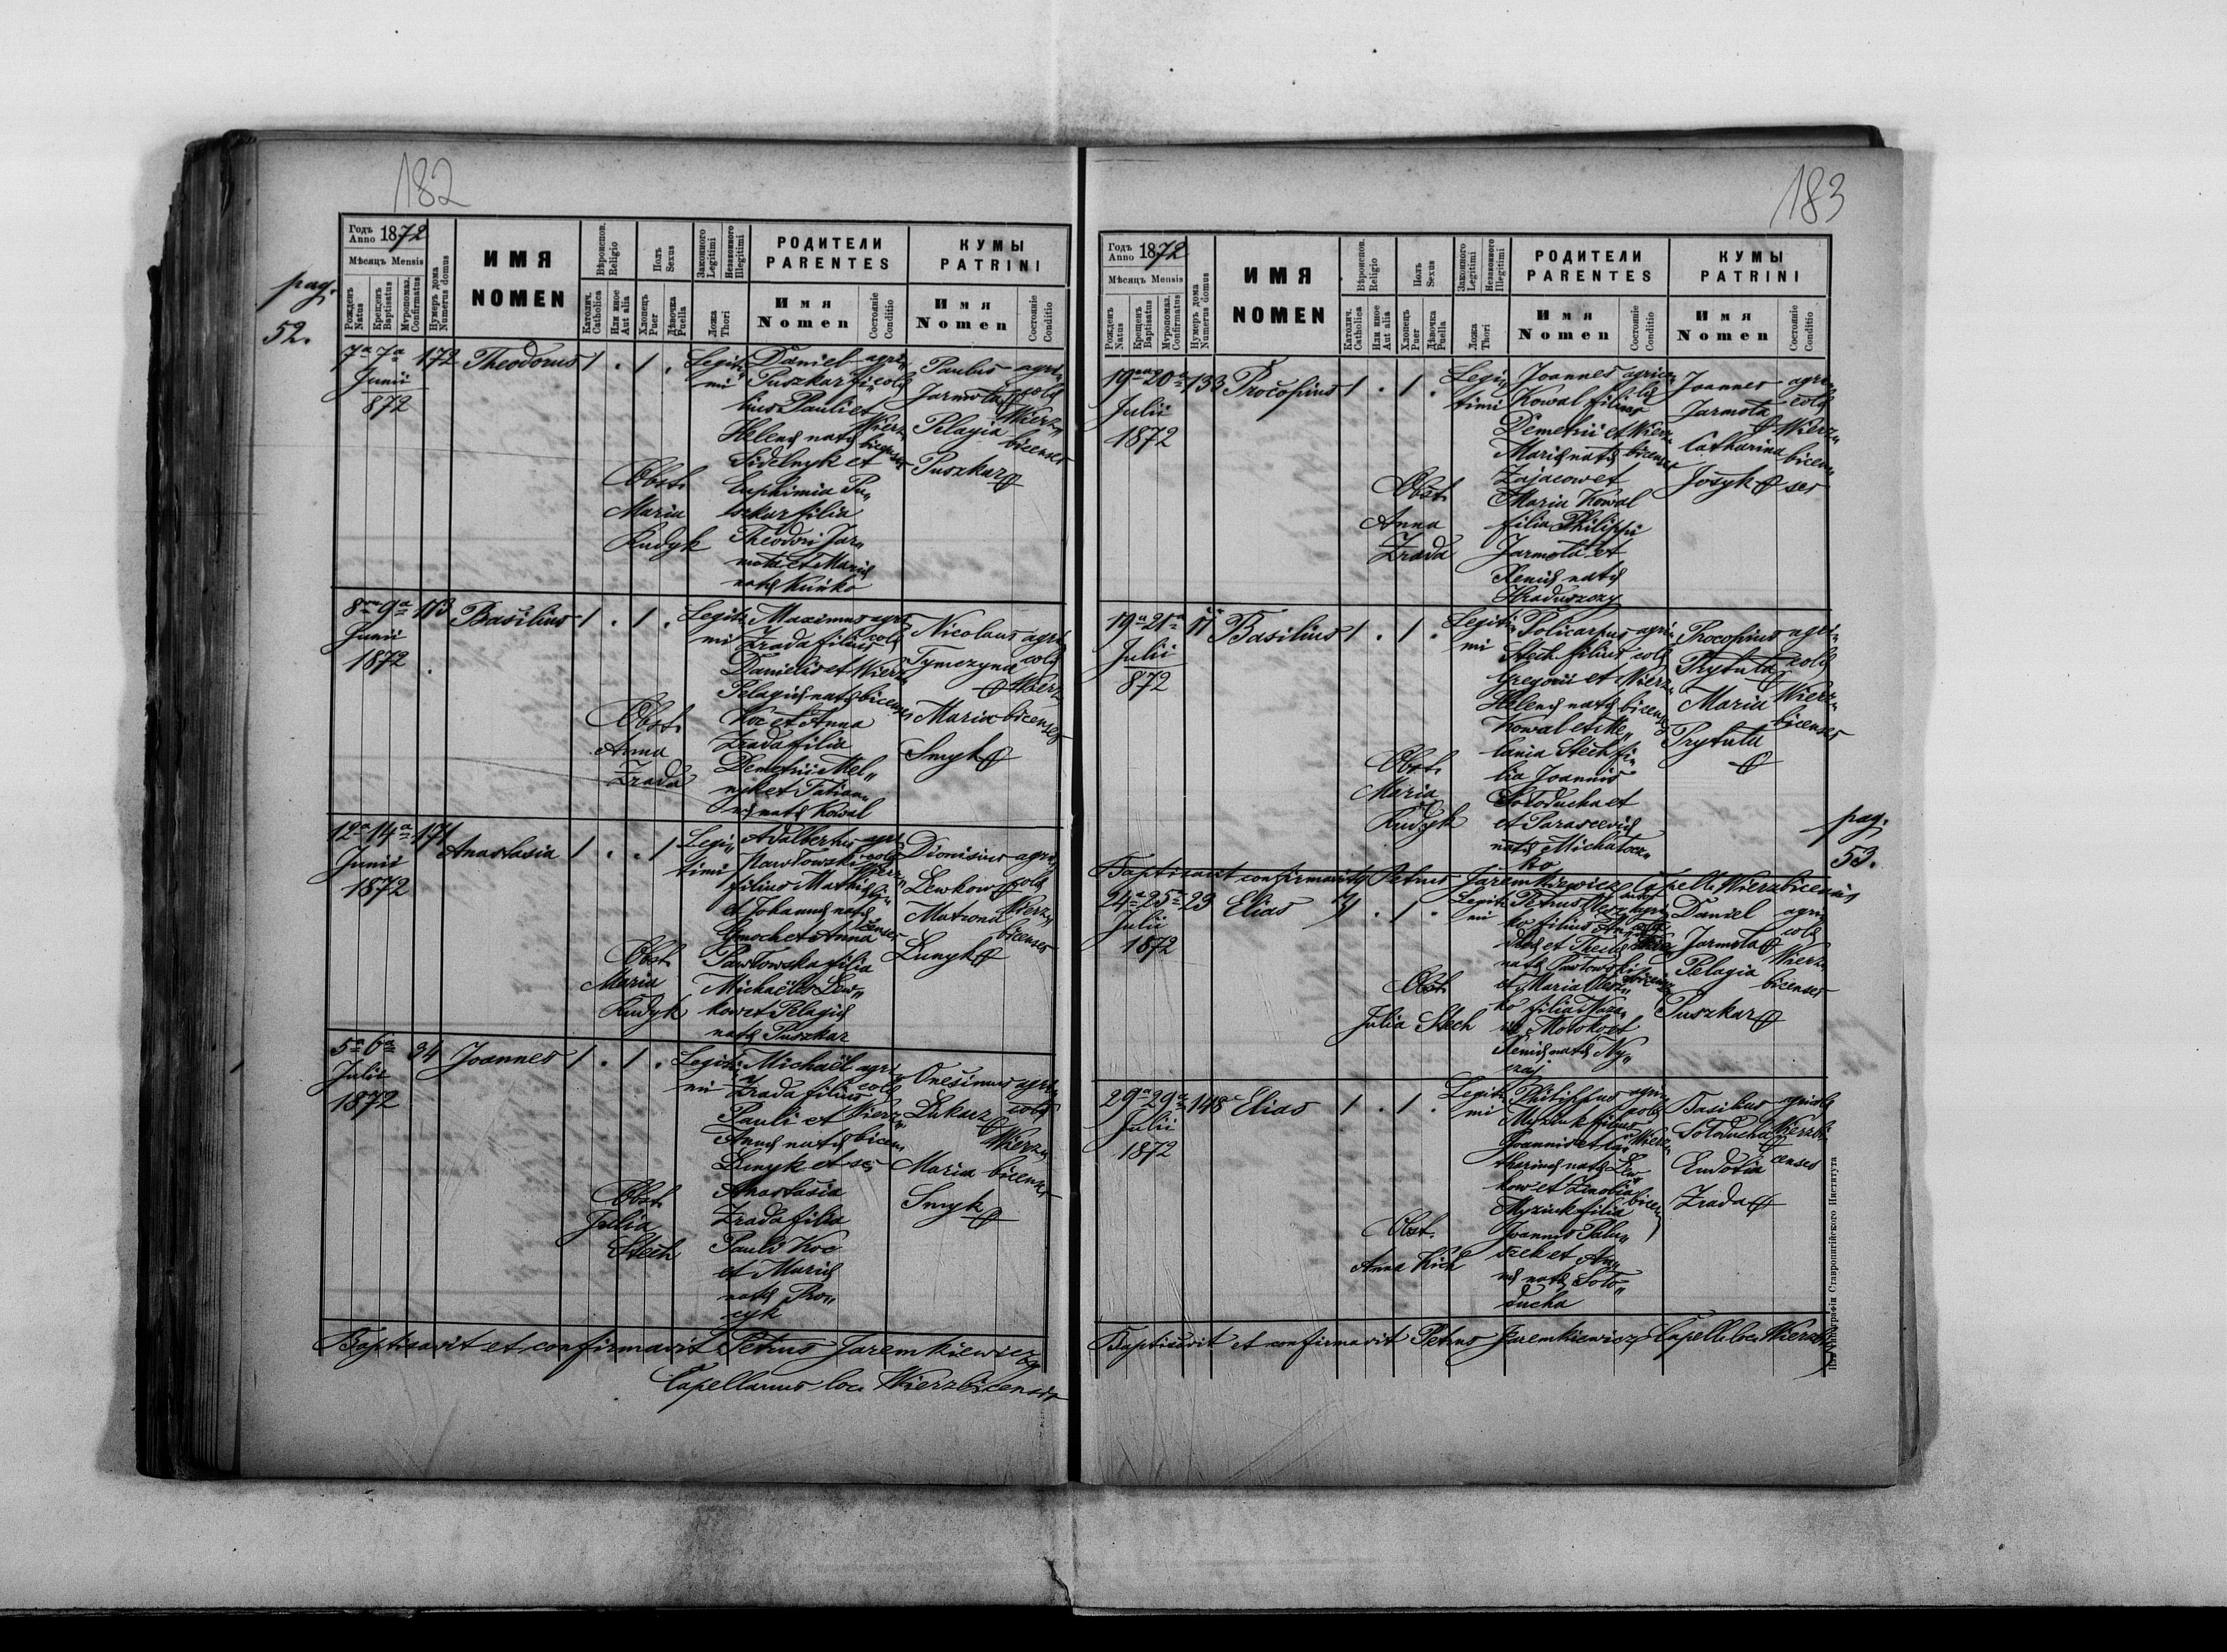 182
pag.
52.
Годъ
Anno 1872
Мѣсяцъ Mensis
Рожденъ
Natus
Крещенъ
Baptisatus
Мѵропомаз.
Confirmatus
Нумеръ дома
Numerus domus
ИМЯ
NOMEN
Вѣроиспов.
Religio
Католич.
Catholica
Или иное
Aut alia
Полъ
Sexus
Хлопецъ
Puer
Дѣвочка
Puella
Законного
Legitimi
Незаконного
Illegitimi
Ложа
Thori
РОДИТЕЛИ
PARENTES
Имя
Nomen
Состояніе
Conditio
КУМЫ
PATRINI
Имя
Nomen
Состояніе
Conditio
7a 7a 172 Theodorus 1 . 1 .
Junii
872
Legiti„
mi
Daniel
Puszkar fi„
lius Pauli et
Helenę natę
Sidelnyk et
Euphimia Pu„
szkar filia
Theodori Jar„
mota et Marię
natę Kuńko
agri„
colę
Wierz„
bicenses
Paulus
Jarmota
Pelagia
Puszkar
agri„
colę
Wierz„
bicenses
Obst.
Maria
Kudyk
8a 9a 113 Basilius 1 . 1 .
Junii
1872
Legiti„
mi
Maximus
Zrada filius
Danielis et
Pelagię natę
Koc et Anna
Zrada filia
Demetrii Mel„
nyk et Tatian„
nę natę Kowal
agri
colę
Wierz„
bicenses
Nicolaus
Tymczyna
Maria
Smyk
agri„
colę
Wierz„
bicenses
Obst.
Anna
Zrada
12a 14a 171 Anastasia 1 . . 1
Junii
1872
Legi„
timi
Adalbertus
Pawłowski
filius Mathię
et Johannę natę
Gmoch et Anna
Pawłowska filia
Michaëlis Lew„
kow et Pelagię
natę Puszkar
agri
colę
Wierz„
bi„
censes
Dionisius
Lewkow
Matrona
Lunyk
agri„
colę
Wierz„
bicenses
Obst.
Maria
Kudyk
5a 6a 34 Joannes 1 . 1 .
Julii
1872
Legiti„
mi
Michaël
Zrada filius
Pauli et
Annę natę
Lunyk et
Anastasia
Zrada filia
Pauli Koc
et Marię
natę Pro„
cyk
agri„
colę
Wierz„
bicen„
ses
Onesimus
Lukasz
Maria
Smyk
agri„
colę
Wierz„
bicenses
Obst.
Julia
Stech
Baptisavit et confirmavit Petrus Jaremkiewicz
Capellanus loci Wierzbicensis
183
Годъ
Anno 1872
Мѣсяцъ Mensis
Рожденъ
Natus
Крещенъ
Baptisatus
Мѵропомаз.
Confirmatus
Нумеръ дома
Numerus domus
ИМЯ
NOMEN
Вѣроиспов.
Religio
Католич.
Catholica
Или иное
Aut alia
Полъ
Sexus
Хлопецъ
Puer
Дѣвочка
Puella
Законного
Legitimi
Незаконного
Illegitimi
Ложа
Thori
РОДИТЕЛИ
PARENTES
Имя
Nomen
Состояніе
Conditio
КУМЫ
PATRINI
Имя
Nomen
Состояніе
Conditio
19a 20a 133 Procopius 1 . 1 .
Julii
1872
Legi„
timi
Joannes
Kowal filius
Demetrii et
Marię natę
Zajacow et
Maria Kowal
filia Philippi
Jarmota et
Xenię natę
Hraduszczy
agrico„
lę
Wierz„
bicenses
Joannes
Jarmota
Catharina
Josyk
agri„
colę
Wierz„
bicen„
ses
Obst.
Anna
Zrada
19a 21a 11 Basilius 1 . 1 .
Julii
872
Legiti„
mi
Policarpus
Stech filius
Gregorii et
Helenę natę
Kowal et Me„
lania Stech fi„
lia Joannis
Sołoducha et
et Parascevię
natę Michałocz„
ko
agri„
colę
Wierz„
bicenses
Procopius
Prytuła
Maria
Prytuła
agri„
colę
Wierz„
bicenses
Obst.
Maria
Kudyk
pag.
53.
Baptisavit confirmavitq Petrus Jaremkiewicz Capell. Wierzbicensis
24a 25a 23 Elias 1 . 1 .
Julii
1872
Legiti„
mi
Obst.
Julia Stech
Daniel
Jarmota
Pelagia
Puszkar
agri„
colę
Wierz„
bicenses
29a 29a 148 Elias 1 . 1 .
Julii
1872
Legiti„
mi
Philippus
Myziuk filius
Joannis et Ca„
tharinę natę Lew„
kow et Zinobia
Myziuk filia
Joannis Palu„
szek et An„
nę natę Soło„
ducha
agri„
colę
Wierz„
bicen„
Basilius
Sołoducha
Eudotia
Zrada
agricolę
Wierzbi„
censes
Obst.
Anna Kich
Baptisavit et confirmavit Petrus Jaremkiewicz Capell. loci Wierzb.
Изъ Типографіи Ставропигійского Института